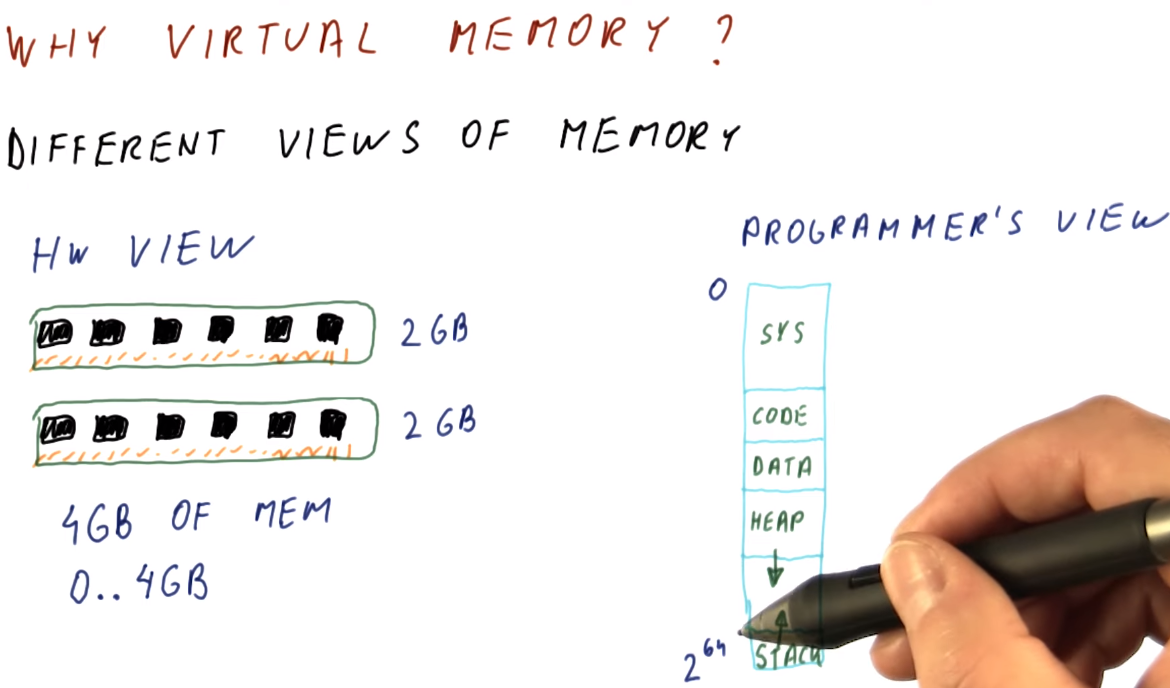 WHY VIRTUAL MEMORY ?
DIFFERENT VIEWS OF MEMORY
HW VIEW
2 GB
2 GB
4GB OF MEM
0.. 4GB
PROGRAMMER'S VIEW
0
SYS
CODE
DATA
HEAP
STACK
2^64